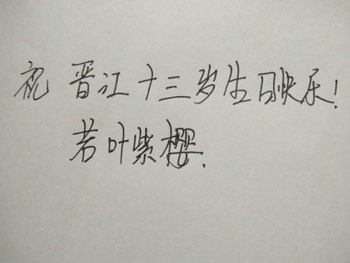 祝 晋江十三岁生日快乐!
若叶紫樱.